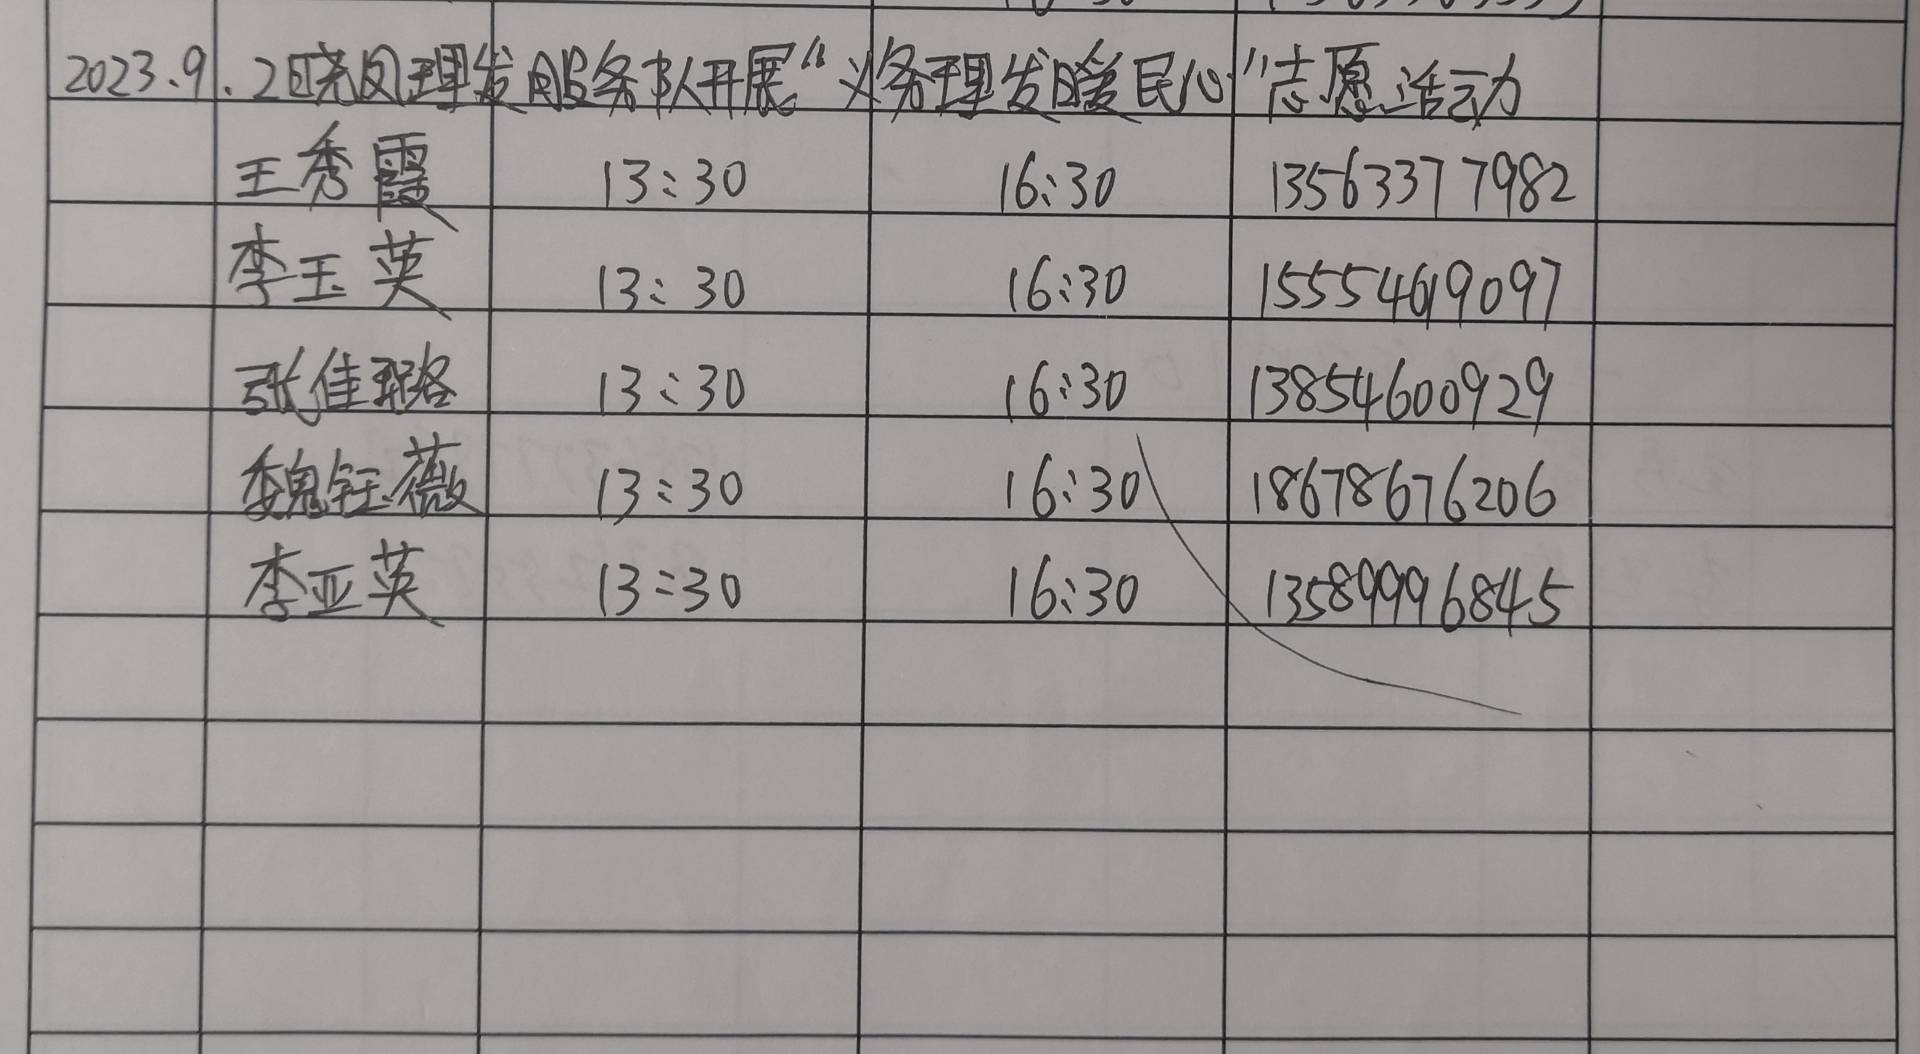 2023.9.2晓凤理发服务队开展“义务理发暖民心”志愿活动
王秀霞 13:30 16:30 13563377982
李玉英 13:30 16:30 15554619097
张佳璐 13:30 16:30 13854600929
魏钰薇 13:30 16:30 18678676206
李亚英 13:30 16:30 13589996845